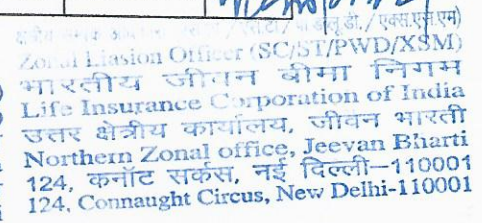 / एक्सएसएम)
Zonal Liasion Officer (SC/ST/PWD/XSM)
भारतीय जीवन बीमा निगम
Life Insurance Corporation of India
उत्तर क्षेत्रीय कार्यालय, जीवन भारती
Northern Zonal office, Jeevan Bharti
124, कनॉट सर्कस, नई दिल्ली–110001
124, Connaught Circus, New Delhi-110001